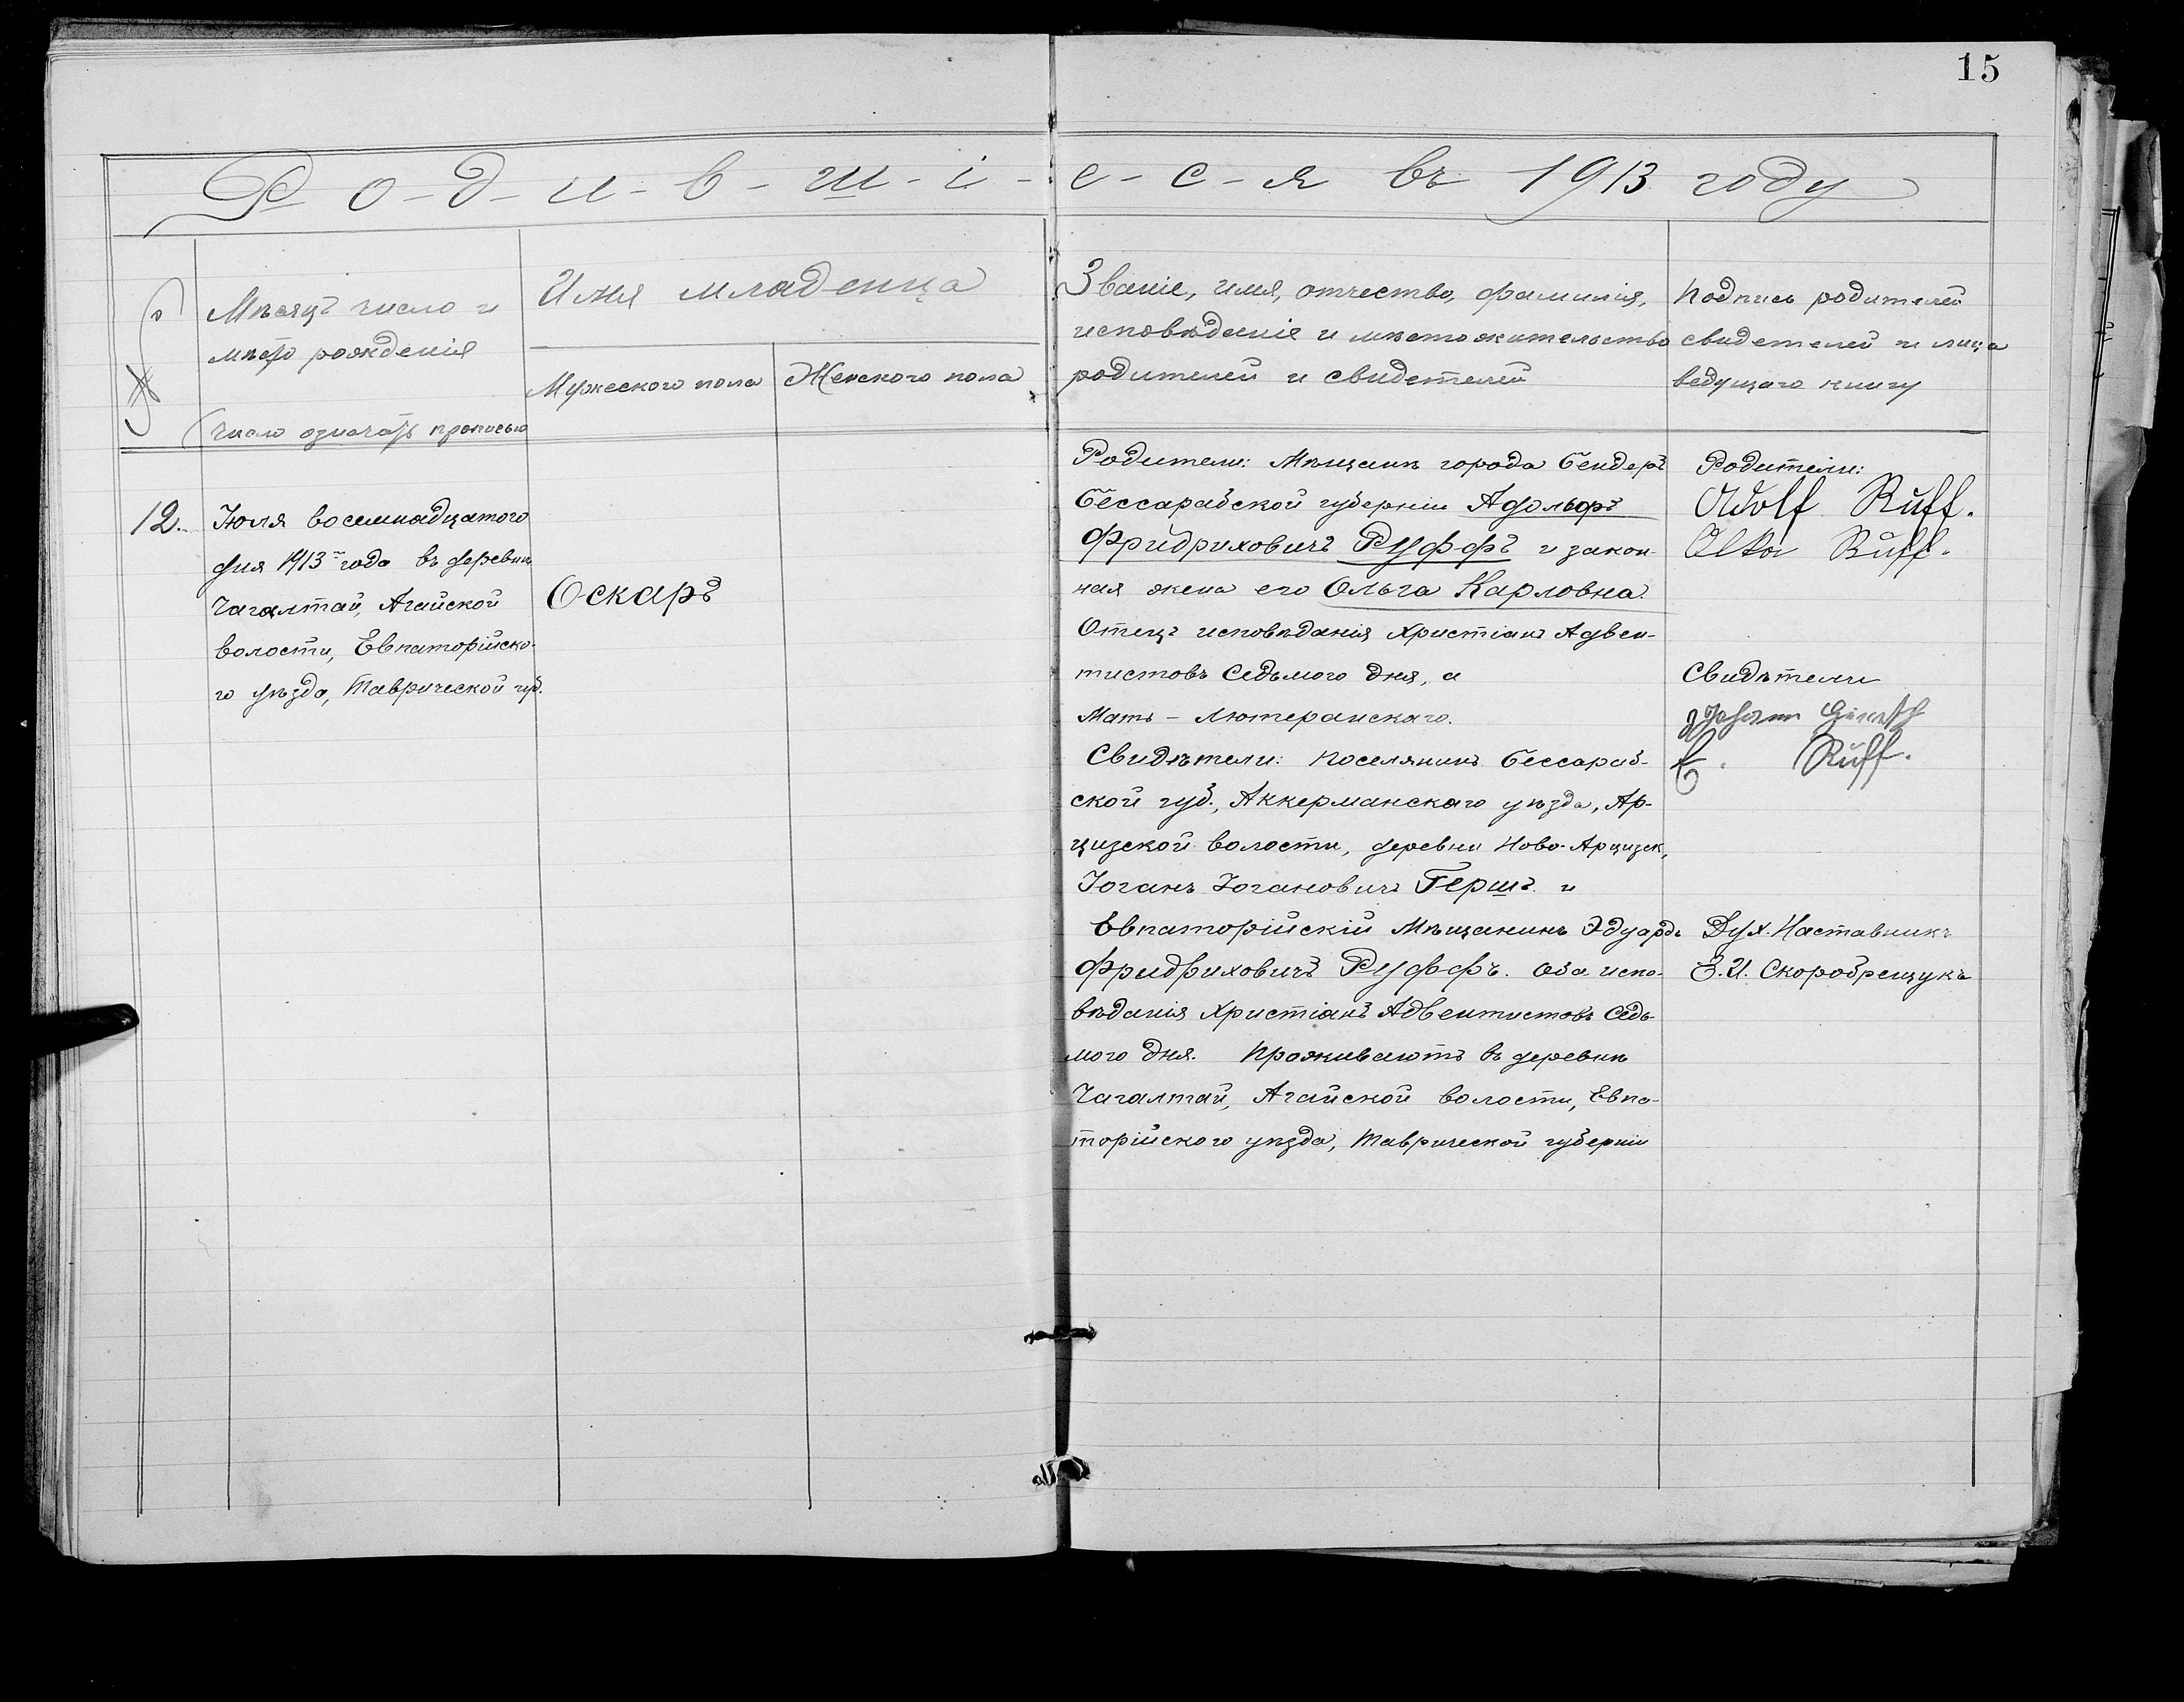 15
Р-о-д-и-в-ш-і-е-с-я въ 1913 году
№
Мѣсяцъ число и
мѣсто рожденія
число означать прописью
Имя младенца
Мужескаго пола
Женскаго пола
Званіе, имя, отчество, фамилія,
исповѣданіе и мѣстожительство
родителей и свидетелей
Подпись родителей
свидетелей и лица
ведущаго книгу
12.
Іюля восемнадцатого
дня 1913 года въ деревни
Чагалтай, Агайской
волости, Евпаторійско-
го уѣзда, Таврической губ.
Оскаръ
Родители: Мѣщанъ города Бендеръ
Бессарабской губерніи Адольфъ
Фридриховичъ Руффъ и закон-
ная жена его Ольга Карловна.
Отецъ исповѣданія Христіанъ Адвен-
тистовъ Седьмого дня, а
Мать - Лютеранскаго.
Свидѣтели: Поселянинъ Бессараб-
ской губ., Аккерманскаго уѣзда, Ар-
цизской волости, деревни Ново-Арцизск,
Іоганъ Іогановичъ Гершъ и
Евпаторійскій Мѣщанинъ Эдуардъ
Фридриховичъ Руффъ. Оба испо-
вѣданія Христіанъ Адвентистовъ Седь-
мого дня. Проживаютъ въ деревнѣ
Чагалтай, Агайской волости, Евпа-
торійского уѣзда, Таврической губерніи
Родители:
Adolf Ruff.
Olta Ruff.
Свидѣтели
Johann
E. Ruff.
Дух. Наставникъ
Е. И. Скоробрещукъ